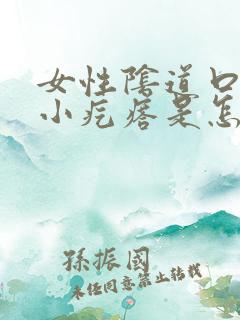 女性陰道口
小疙瘩是怎
孫振國
未经同意禁止转载